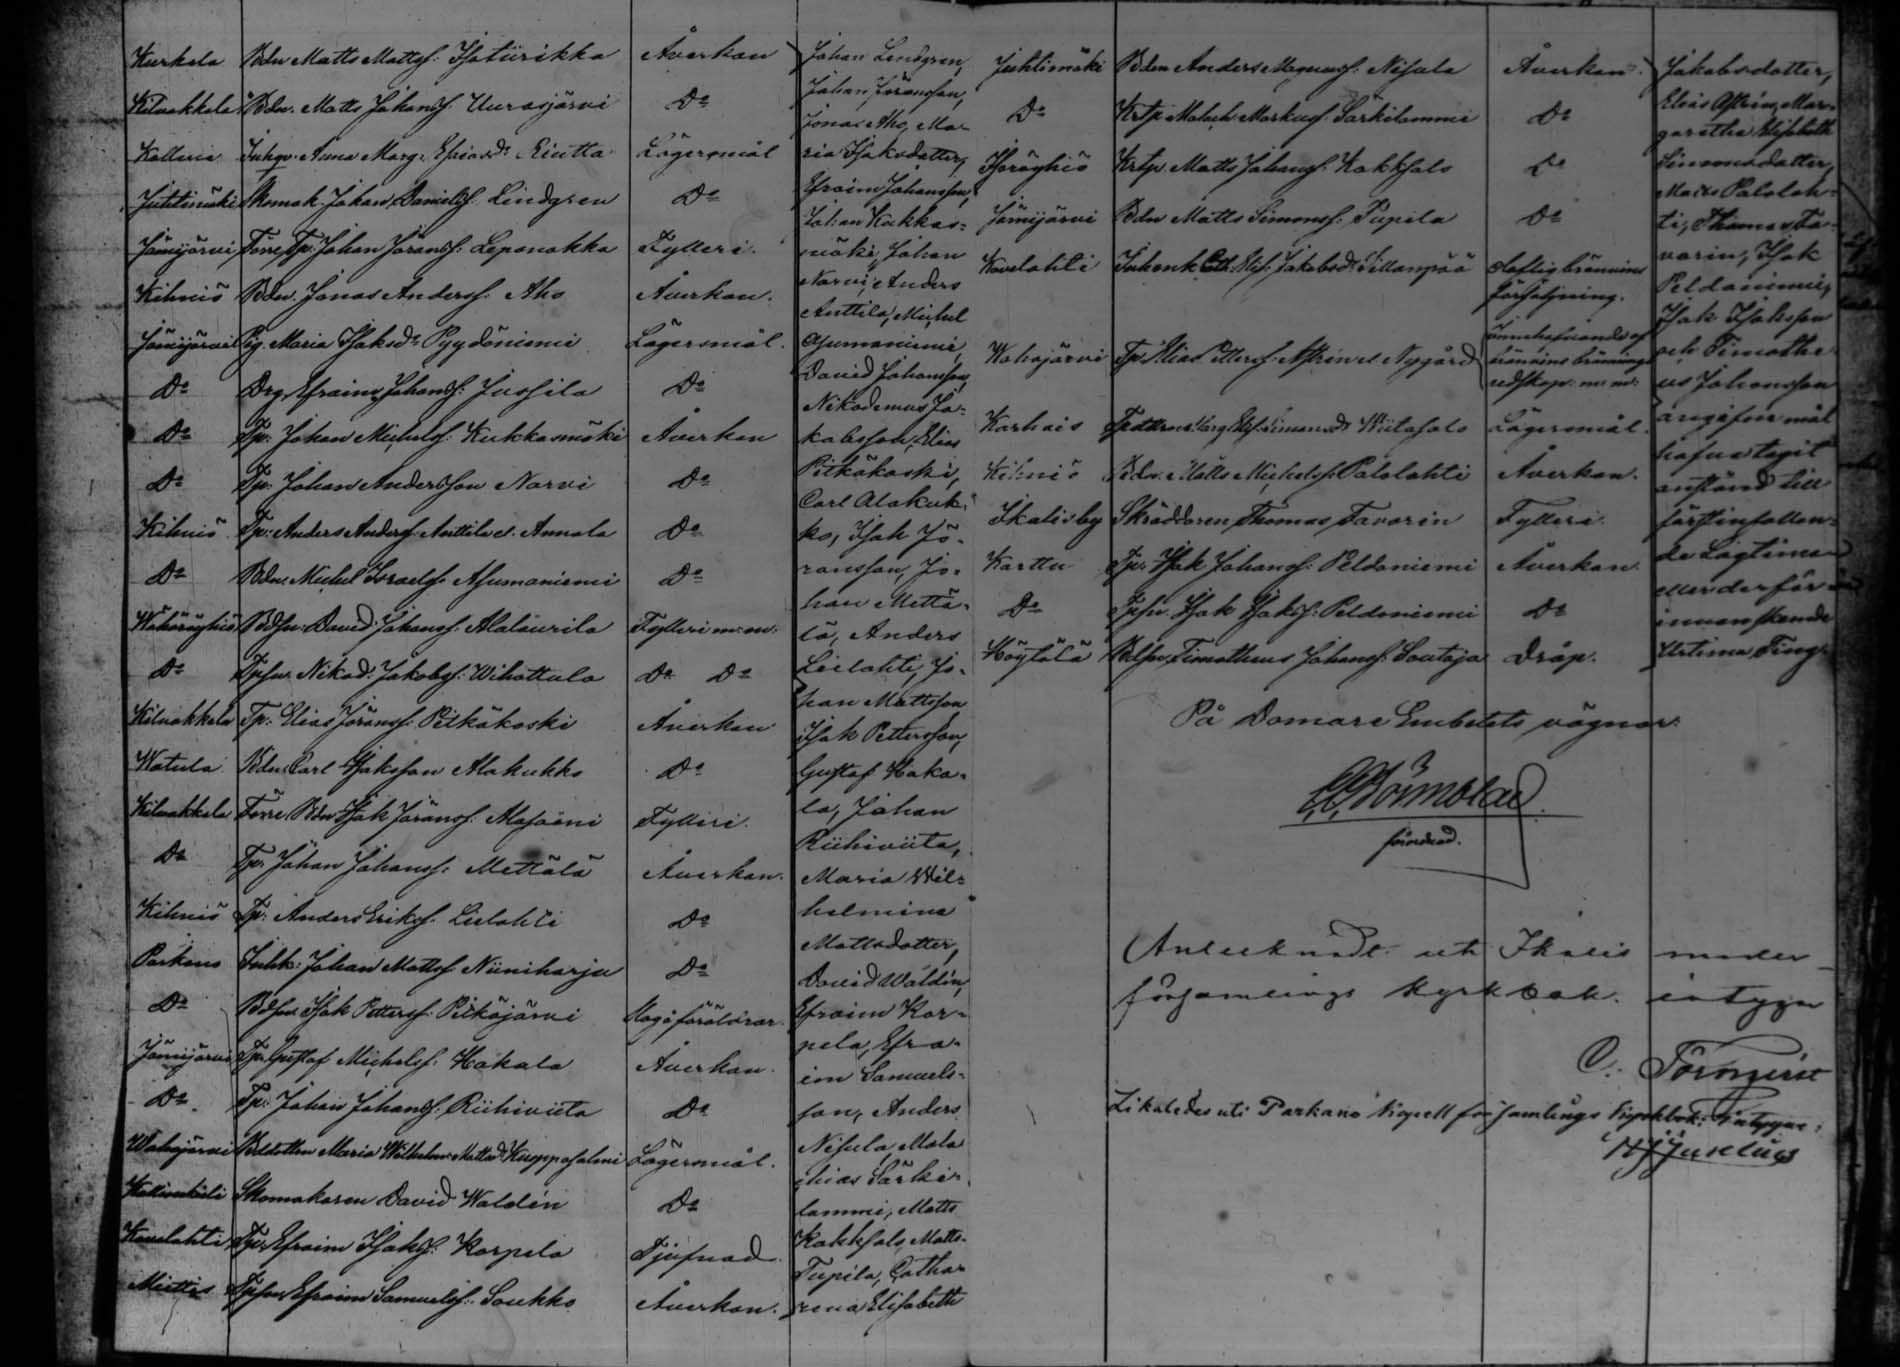 Kurkela Bdn Matts Mattsf: Isotiirikka Åverkan
Kilvakkala Bdn. Matts Johansf. Uurasjärvi Do
Inhqv: Anna Marg: Lägersmål
Juhtimäki Skomak. Johan Danielsf. Lindgren Do
Jämijärvi Förre Tp: Johan Göransf. Leponokka Fylleri.
Kihniö Bdn. Jonas Andersf. Aho Åverkan.
Jämijärvi Pig. Maria Isaksdr Pyydöniemi Lägersmål.
Do Drg. Efraim Johansf. Jussila Do
Do Tp: Johan Michelsf. Kukkasmäki Åverkan
Do Tp: Johan Andersson Narvi Do
Kihniö Tp: Anders Andersf. Anttila el. Annala Do
Do Bdn. Michel Israelsf. Asumaniemi Do
Wähäröyhiö Bdsn. David Johansf. Alalaurila Fylleri m: m:
Do Tpsn. Nikod: Jakobsf: Wihattula Do Do
Kilvakkala Tp. Elias Göransf. Pitkäkoski Åverkan
Watula Bdn Carl Isaksson Alakukko Do
Kilvakkala Förre Bdn Isak Göransf. Alasaari Fylleri.
Do Tp. Johan Johansf. Mettälä Åverkan.
Kihniö Tp: Anders Eriksf. Lielahti Do
Parkano Inhk: Johan Mattsf. Niiniharju Do
Do Bdsn Isak Pettersf. Pitkäjärvi
Jämijärvi Tp. Gustaf Michelsf. Hakala Åverkan.
Do Tp: Johan Johansf. Riihiviita Do
Wahojärvi Bddottren Maria Wilhelm: Mattsd. Kuoppasalmi Lägersmål.
Skomakaren David Waldén Do
Kovelahti Tp. Efraim Isaksf. Korpela Tjufnad
Miettis Tpson Efraim Samuelsf. Soukko Åverkan.
Johan Lindgren,
Johan Göransson,
Jonas Aho, Ma-
ria Isaksdotter,
Efraim Johansson,
Johan Kukkas-
mäki, Johan
Narvi, Anders
Anttila, Michel
Asumaniemi,
David Johansson,
Nikodemus Ja-
kobsson, Elias
Pitkäkoski,
Carl Alakuk-
ko, Isak Gö-
ransson, Jo-
han Mettä-
lä, Anders
Lielahti, Jo-
han Mattsson
Isak Pettersson,
Gustaf Haka-
la, Johan
Riihiviita,
Maria Wil-
helmina
Mattsdotter,
David Waldén,
Efraim Kor-
pela, Efra-
im Samuels-
son, Anders
Nisula, Mala
chias Särki-
lammi, Matts
Kokksalo, Matts
Tupila, Catha-
rina Elisabeth
Juhtimäki Bdn Anders Magnusf. Nisula Åverkan.
Do Krtp. Malach. Markusf. Särkilammi Do
Krtp. Matts Johansf. Kokksalo Do
Jämijärvi Bdn Matts Simonsf. Tupila Do
Kovelahti Inhenk. Cath. Elis. Jakobsdr Villanpää olaflig bränvins
försäljning.
Wahojärvi Tp. Elias Pettersf. Afrén el. Nygård innehafvande af
bränvins brännings
redskap m: m:
Karhois Lägersmål.
Kihniö Bdn. Matts Michelsf. Palolahti Åverkan.
Ikalis by Skräddaren Thomas Favorin Fylleri.
Karttu Tp. Isak Johansf. Peldoniemi Åverkan.
Do Tpsn Isak Isaksf. Peldoniemi Do
Höytölä Bdsn Timotheus Johansf. Sautaja dråp.
Jakobsdotter,
Elias Afrén, Mar-
garetha Elisabeth
Simonsdotter,
Matts Palolah-
ti, Thomas Fa-
vorin, Isak
Peldoniemi,
Isak Isaksson
och Timothe-
us Johansson
angifne mål
hafva tagit
anstånd till
först infallan-
de Lagtima
eller derför
innan skeende
Urtima Ting.
På Domare Embetets vägnar:
förordnad.
Antecknadt uti Ikalis moder
församlings kyrkbok. intygar
Likaledes uti Parkano kapell församlings kyrkbok; intygar: